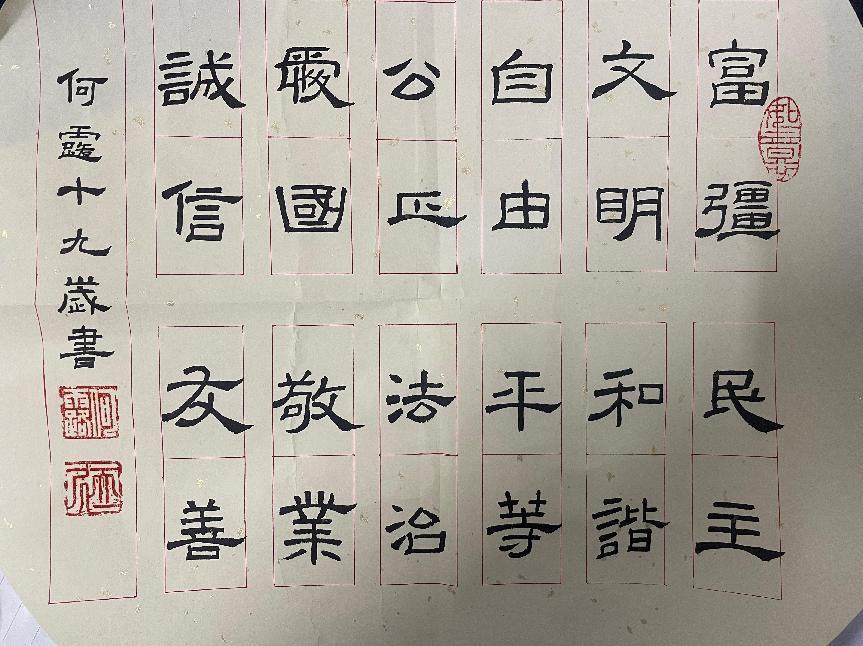 富彊民主
文明和諧
自由平等
公正法治
愛國敬業
誠信友善
何十九歲書